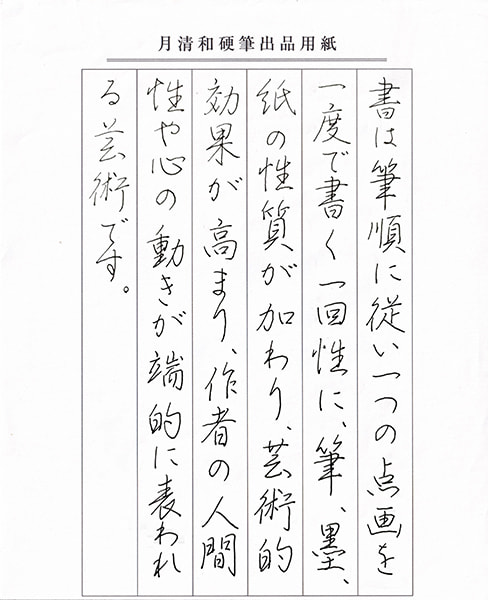 月清和硬筆出品用紙
書は筆順に従い一つの点画を
一度で書く一回性に、筆、墨、
紙の性質が加わり、芸術的
効果が高まり、作者の人間
性や心の動きが端的に表われ
る芸術です。